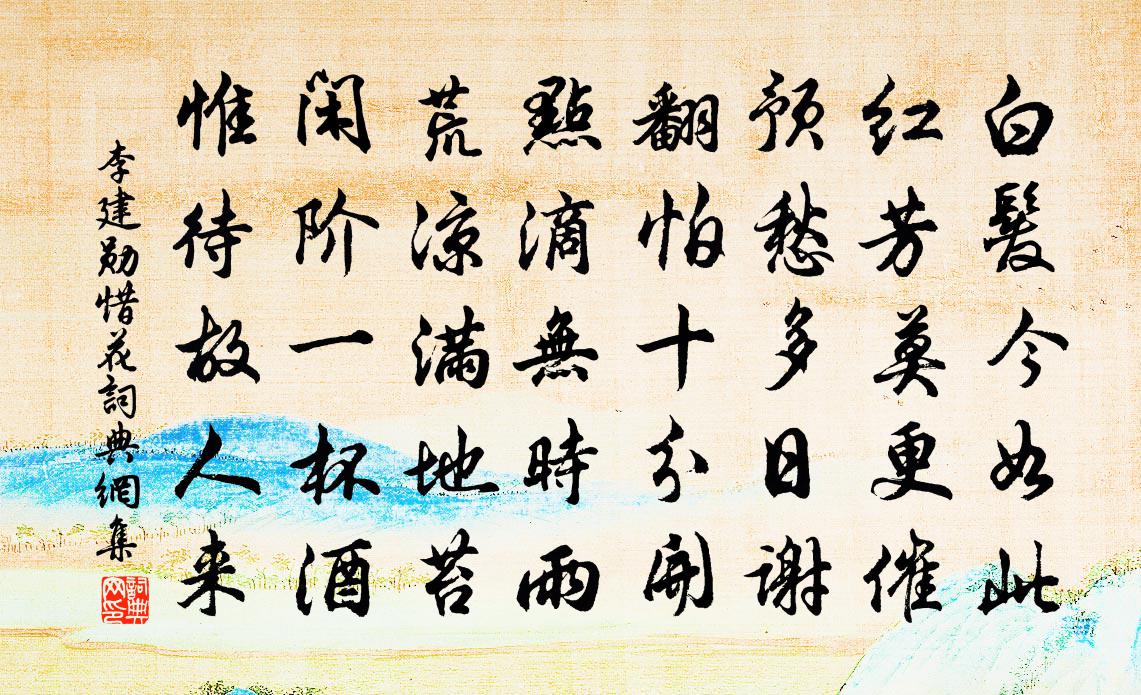 白髮今如此
红芳莫更催
预愁多日谢
翻怕十分開
點滴無時雨
荒凉满地苔
闲阶一杯酒
惟待故人来
李建勋惜花詞典網集
詞典网印